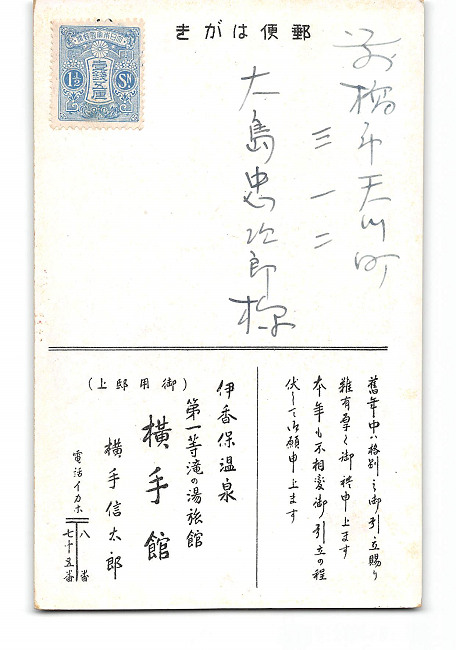 郵便はがき
大日本帝國郵便
壹錢五厘
1½ SN
前橋市天川町
三一二
大島忠次郎様
舊年中ハ格別之御引立賜り
難有厚く御礼申上ます
本年も不相変御引立の程
伏して御願申上ます
伊香保温泉
第一等滝の湯旅館
(御用邸上)
横手館
横手信太郎
電話イカホ 八番
七十五番